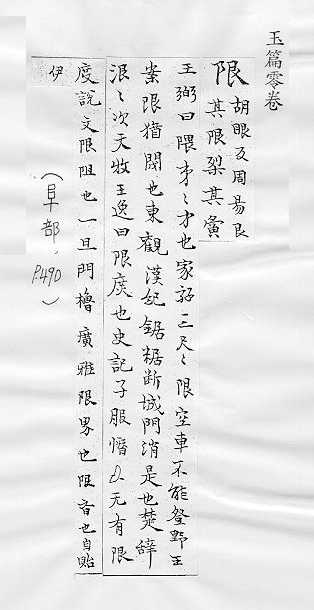 玉篇零卷
限 胡眼反周易艮
其限裂其夤
王弼曰限身〻中也家語三尺〻限空車不能登野王
案限猶閡也東觀漢紀鋸斷城門消是也楚辞
限〻次天牧王逸曰限度也史記子服憯以无有限
度說文限阻也一旦門榰廣雅限界也限音也自貽
伊
(阜部、P.490)